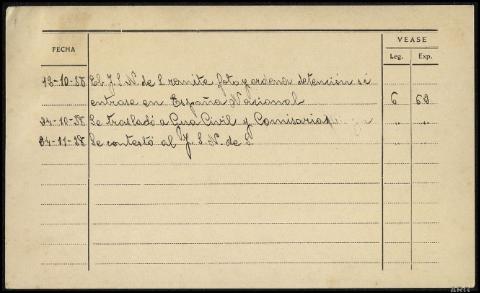 VEASE
FECHA
Leg. Exp.
El J. S. N. de S. remite foto y ordena detención si
entrase en España Nacional 6 63
24-10-38 Se trasladó a Gua Civil y Comisaria " "
Se contestó al J. S. N. de S. " "